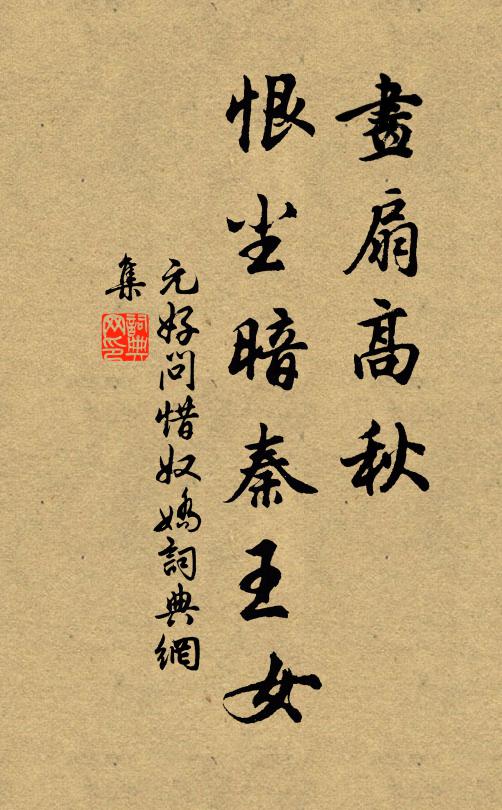 畫扇高秋
恨尘暗秦王女
元好问惜奴嬌詞典網
集
詞典
网印